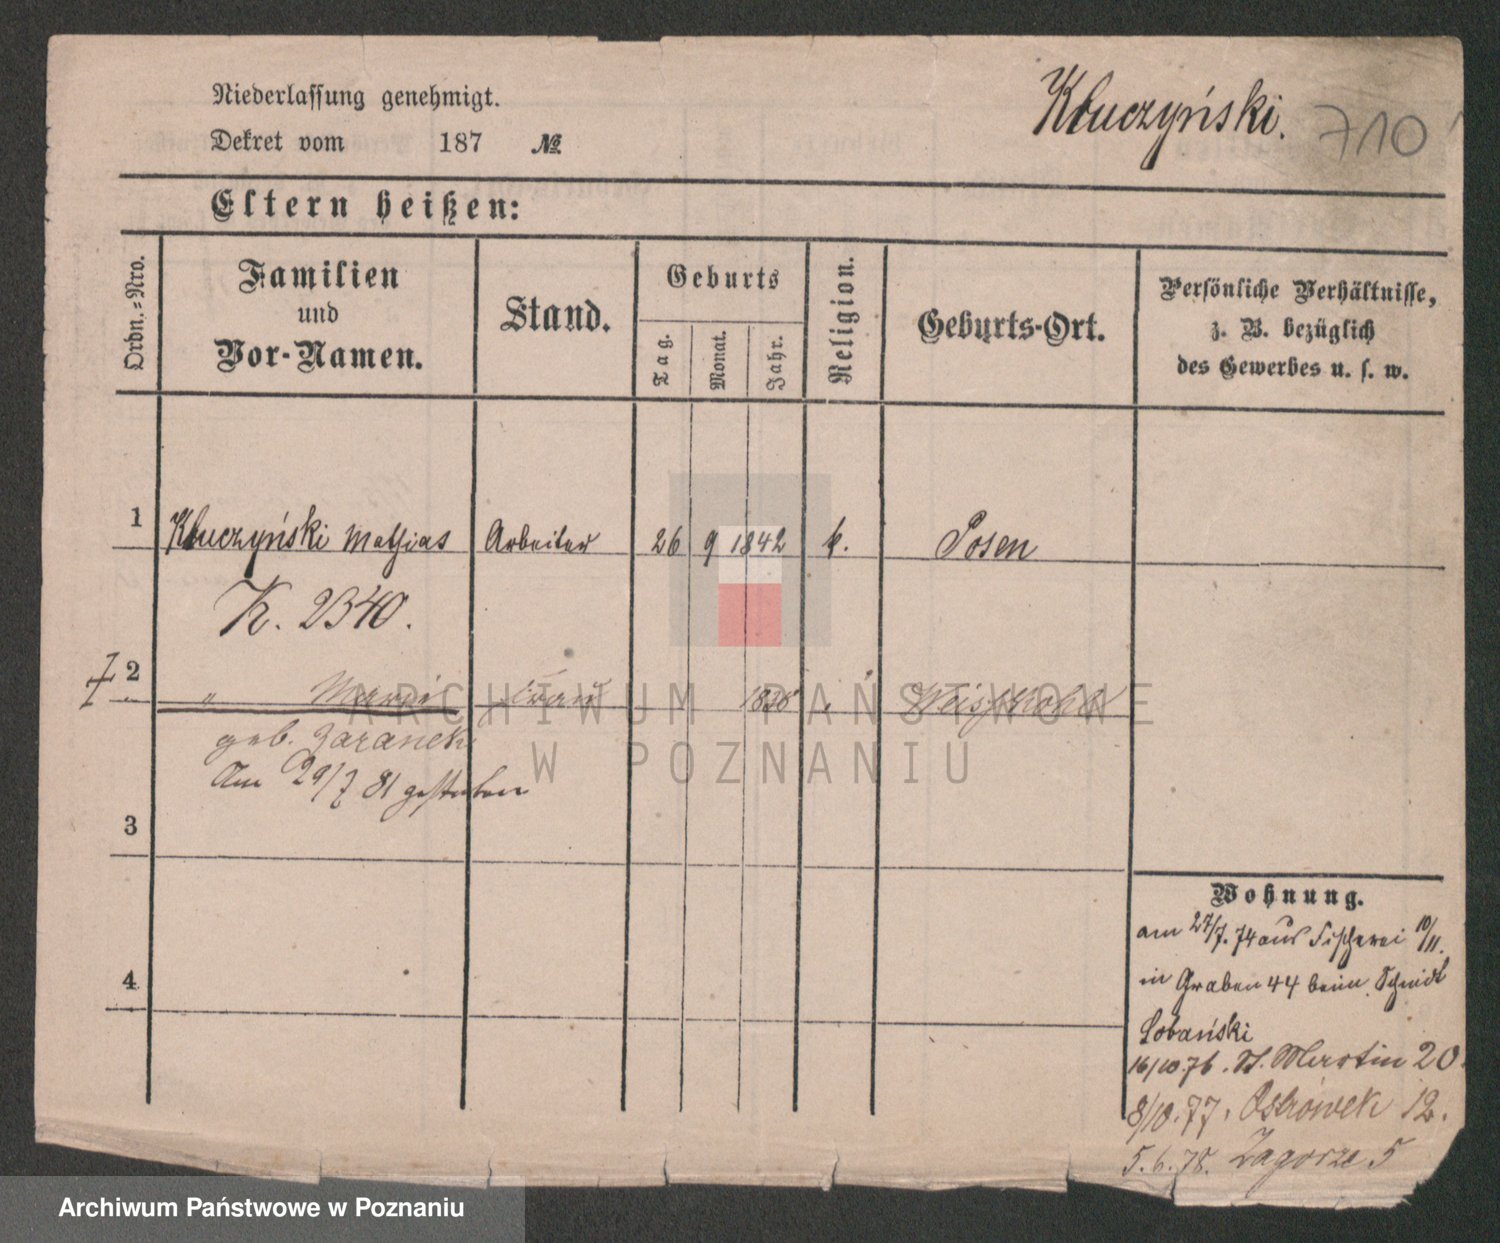 Niederlassung genehmigt.
Dekret vom 187 №
Kłuczyński. 710
Eltern heißen:
Ordn.=Nro.
Familien
und
Vor-Namen.
Stand.
Geburts
Tag.
Monat.
Jahr.
Religion.
Geburts-Ort.
Persönliche Verhältnisse,
z. B. bezüglich
des Gewerbes u. s. w.
1 Kłuczyński Mathias Arbeiter 26 9 1842 k. Posen
K. 2340.
† 2 " Frau 1838 "
geb.
Am 29/7 81 gestorben
3
4
Wohnung.
am 27/7. 74 aus Fischerei 10/11.
in Graben 44 beim Schmidt
Lobański
16/10.76. St. Martin 20.
8/10.77. Ostrówek 12.
5.6.78. Zagorze 5
ARCHIWUM PAŃSTWOWE
W POZNANIU
Archiwum Państwowe w Poznaniu